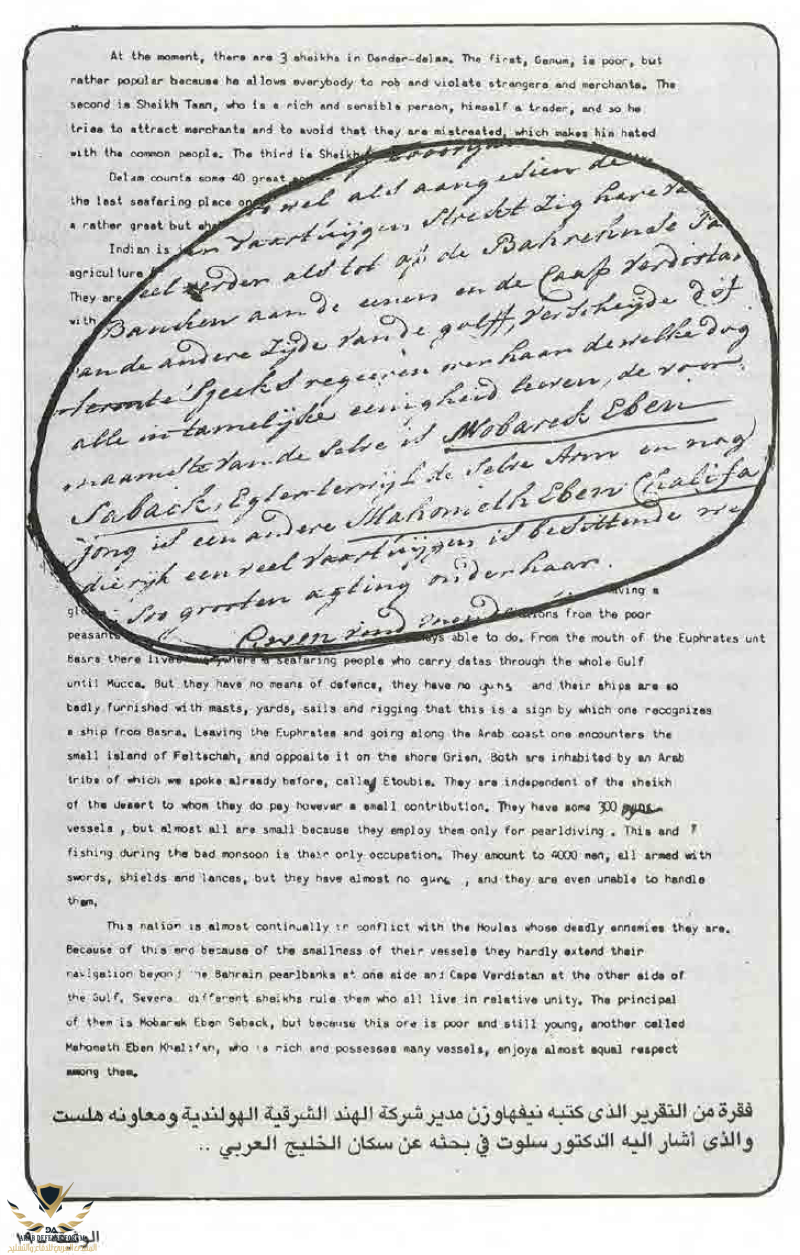 At the moment, there are 3 sheikhs in Dander-delam. The first, Genum, is poor, but
rather popular because he allows everybody to rob and violate strangers and merchants. The
second is Sheikh Taan, who is a rich and sensible person, himself a trader, and so he
tries to attract merchants and to avoid that they are mistreated, which makes him hated
with the common people. The third is Sheikh
Delam counts some 40 great
the last seafaring place on
a rather great but
Indian is
agriculture
They are
with
wel als aangesien de
Vaartuijgen Streckt Zig hare
veel verder als tot op de Bahreinse
Bancken aan de eenen en de Caap Verdistan
van de andere Zijde van de golff, verscheijde
Sjeeks regeeren over haar dewelke dog
alle in tamelijke eenigheid leeven, de voor
naamste van de Selve is Mobareck Eben
Saback, Egter terwijl de Selve Arm en nog
jong is een andere Mahometh Eben Chalifa
die rijk een veel Vaartuijgen is besittende
Soo grooten agting onder haar.
ving a
ions from the poor
peasants
ays able to do. From the mouth of the Euphrates unt
Basra there lives a seafaring people who carry dates through the whole Gulf
until Mucca. But they have no means of defence, they have no guns and their ships are so
badly furnished with masts, yards, sails and rigging that this is a sign by which one recognizes
a ship from Basra. Leaving the Euphrates and going along the Arab coast one encounters the
small island of Feltschah, and opposite it on the shore Grien. Both are inhabited by an Arab
tribe of which we spoke already before, called Etoubis. They are independent of the sheikh
of the desert to whom they do pay however a small contribution. They have some 300
vessels , but almost all are small because they employ them only for pearldiving . This and
fishing during the bad monsoon is their only occupation. They amount to 4000 men, all armed with
swords, shields and lances, but they have almost no guns , and they are even unable to handle
them.
This nation is almost continually in conflict with the Houlas whose deadly ennemies they are.
Because of this and because of the smallness of their vessels they hardly extend their
navigation beyond the Bahrain pearlbanks at one side and Cape Verdistan at the other side of
the Gulf. Several different sheikhs rule them who all live in relative unity. The principal
of them is Mobarak Eben Saback, but because this one is poor and still young, another called
Mahometh Eben Khalifah, who is rich and possesses many vessels, enjoys almost equal respect
among them.
فقرة من التقرير الذى كتبه نيفهاوزن مدير شركة الهند الشرقية الهولندية ومعاونه هلست
والذى أشار اليه الدكتور سلوت في بحثه عن سكان الخليج العربي ..
DA
ARAB DEFENSE FORUM